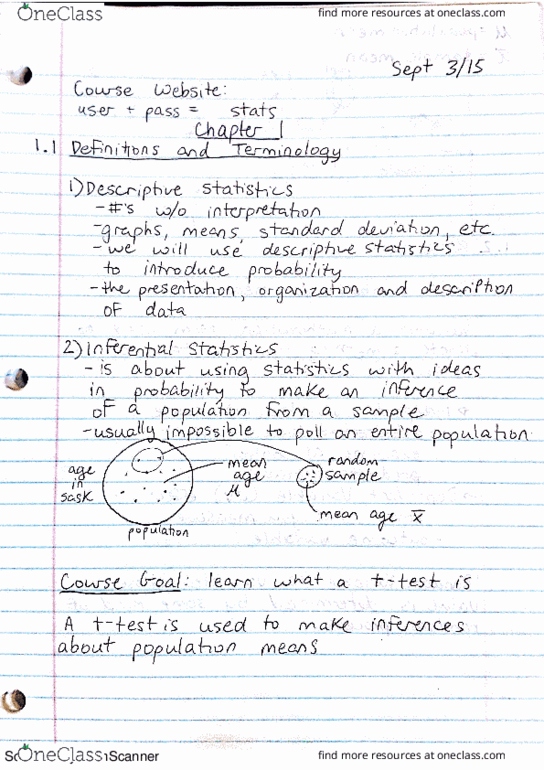 OneClass
find more resources at oneclass.com
Sept 3/15
Course Website:
user + pass = stats
Chapter 1
1.1 Definitions and Terminology
1) Descriptive Statistics
- #'s w/o interpretation
- graphs, means, standard deviation, etc.
- we will use descriptive statistics
to introduce probability
- the presentation, organization and description
of data
2) Inferential Statistics
- is about using statistics with ideas
in probability to make an inference
of a population from a sample
- usually impossible to poll an entire population
age
in
sask
mean
age
μ
random
sample
mean age x̄
population
Course Goal: learn what a t-test is
A t-test is used to make inferences
about population means
OneClass
Scanner
find more resources at oneclass.com